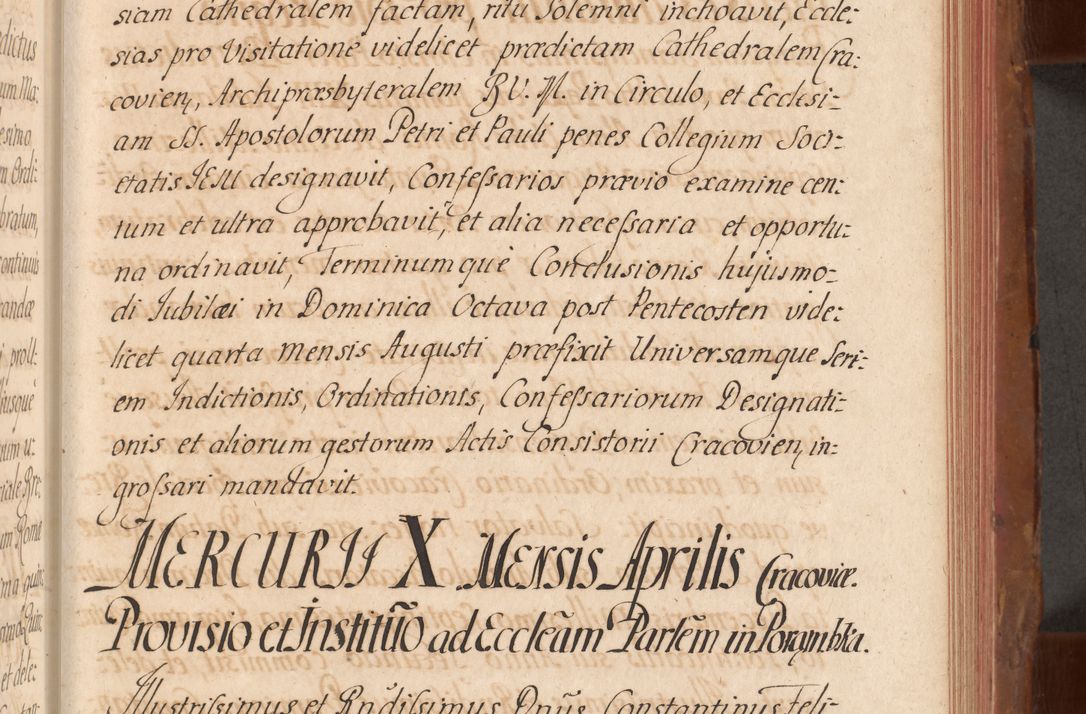 siam Cathedralem factam, ritu Solemni inchoavit, Eccle:
sias pro Visitatione videlicet prædictam Cathedralem Cra:
covien, Archipræsbyteralem B.V.M. in Circulo, et Ecclesi:
am SS. Apostolorum Petri et Pauli penes Collegium Soci:
etatis IESU designavit, Confeſsarios prævio examine cen:
tum et ultra approbavit, et alia neceſsaria et opportu:
na ordinavit, Terminumquè Conclusionis hujusmo:
di Jubilæi in Dominica Octava post Pentecosten vide:
licet quarta mensis Augusti præfixit Universamque Seri:
em Indictionis, Ordinationis, Confeſsariorum Designati:
onis et aliorum gestorum Actis Consistorii Cracovien, in:
groſsari mandavit.
MERCURII X Mensis Aprilis Cracoviæ.
Provisio et Institũo ad Eccleãm Parlẽm in Porąmbka.
Illustriſsimus et Rṽdiſsimus Dnũs Constantinus Feli:
dictus
um Ma:
esimo
m Ordi:
bratum,
continuis
candæ
i proll:
um u:
Roma
et dele: